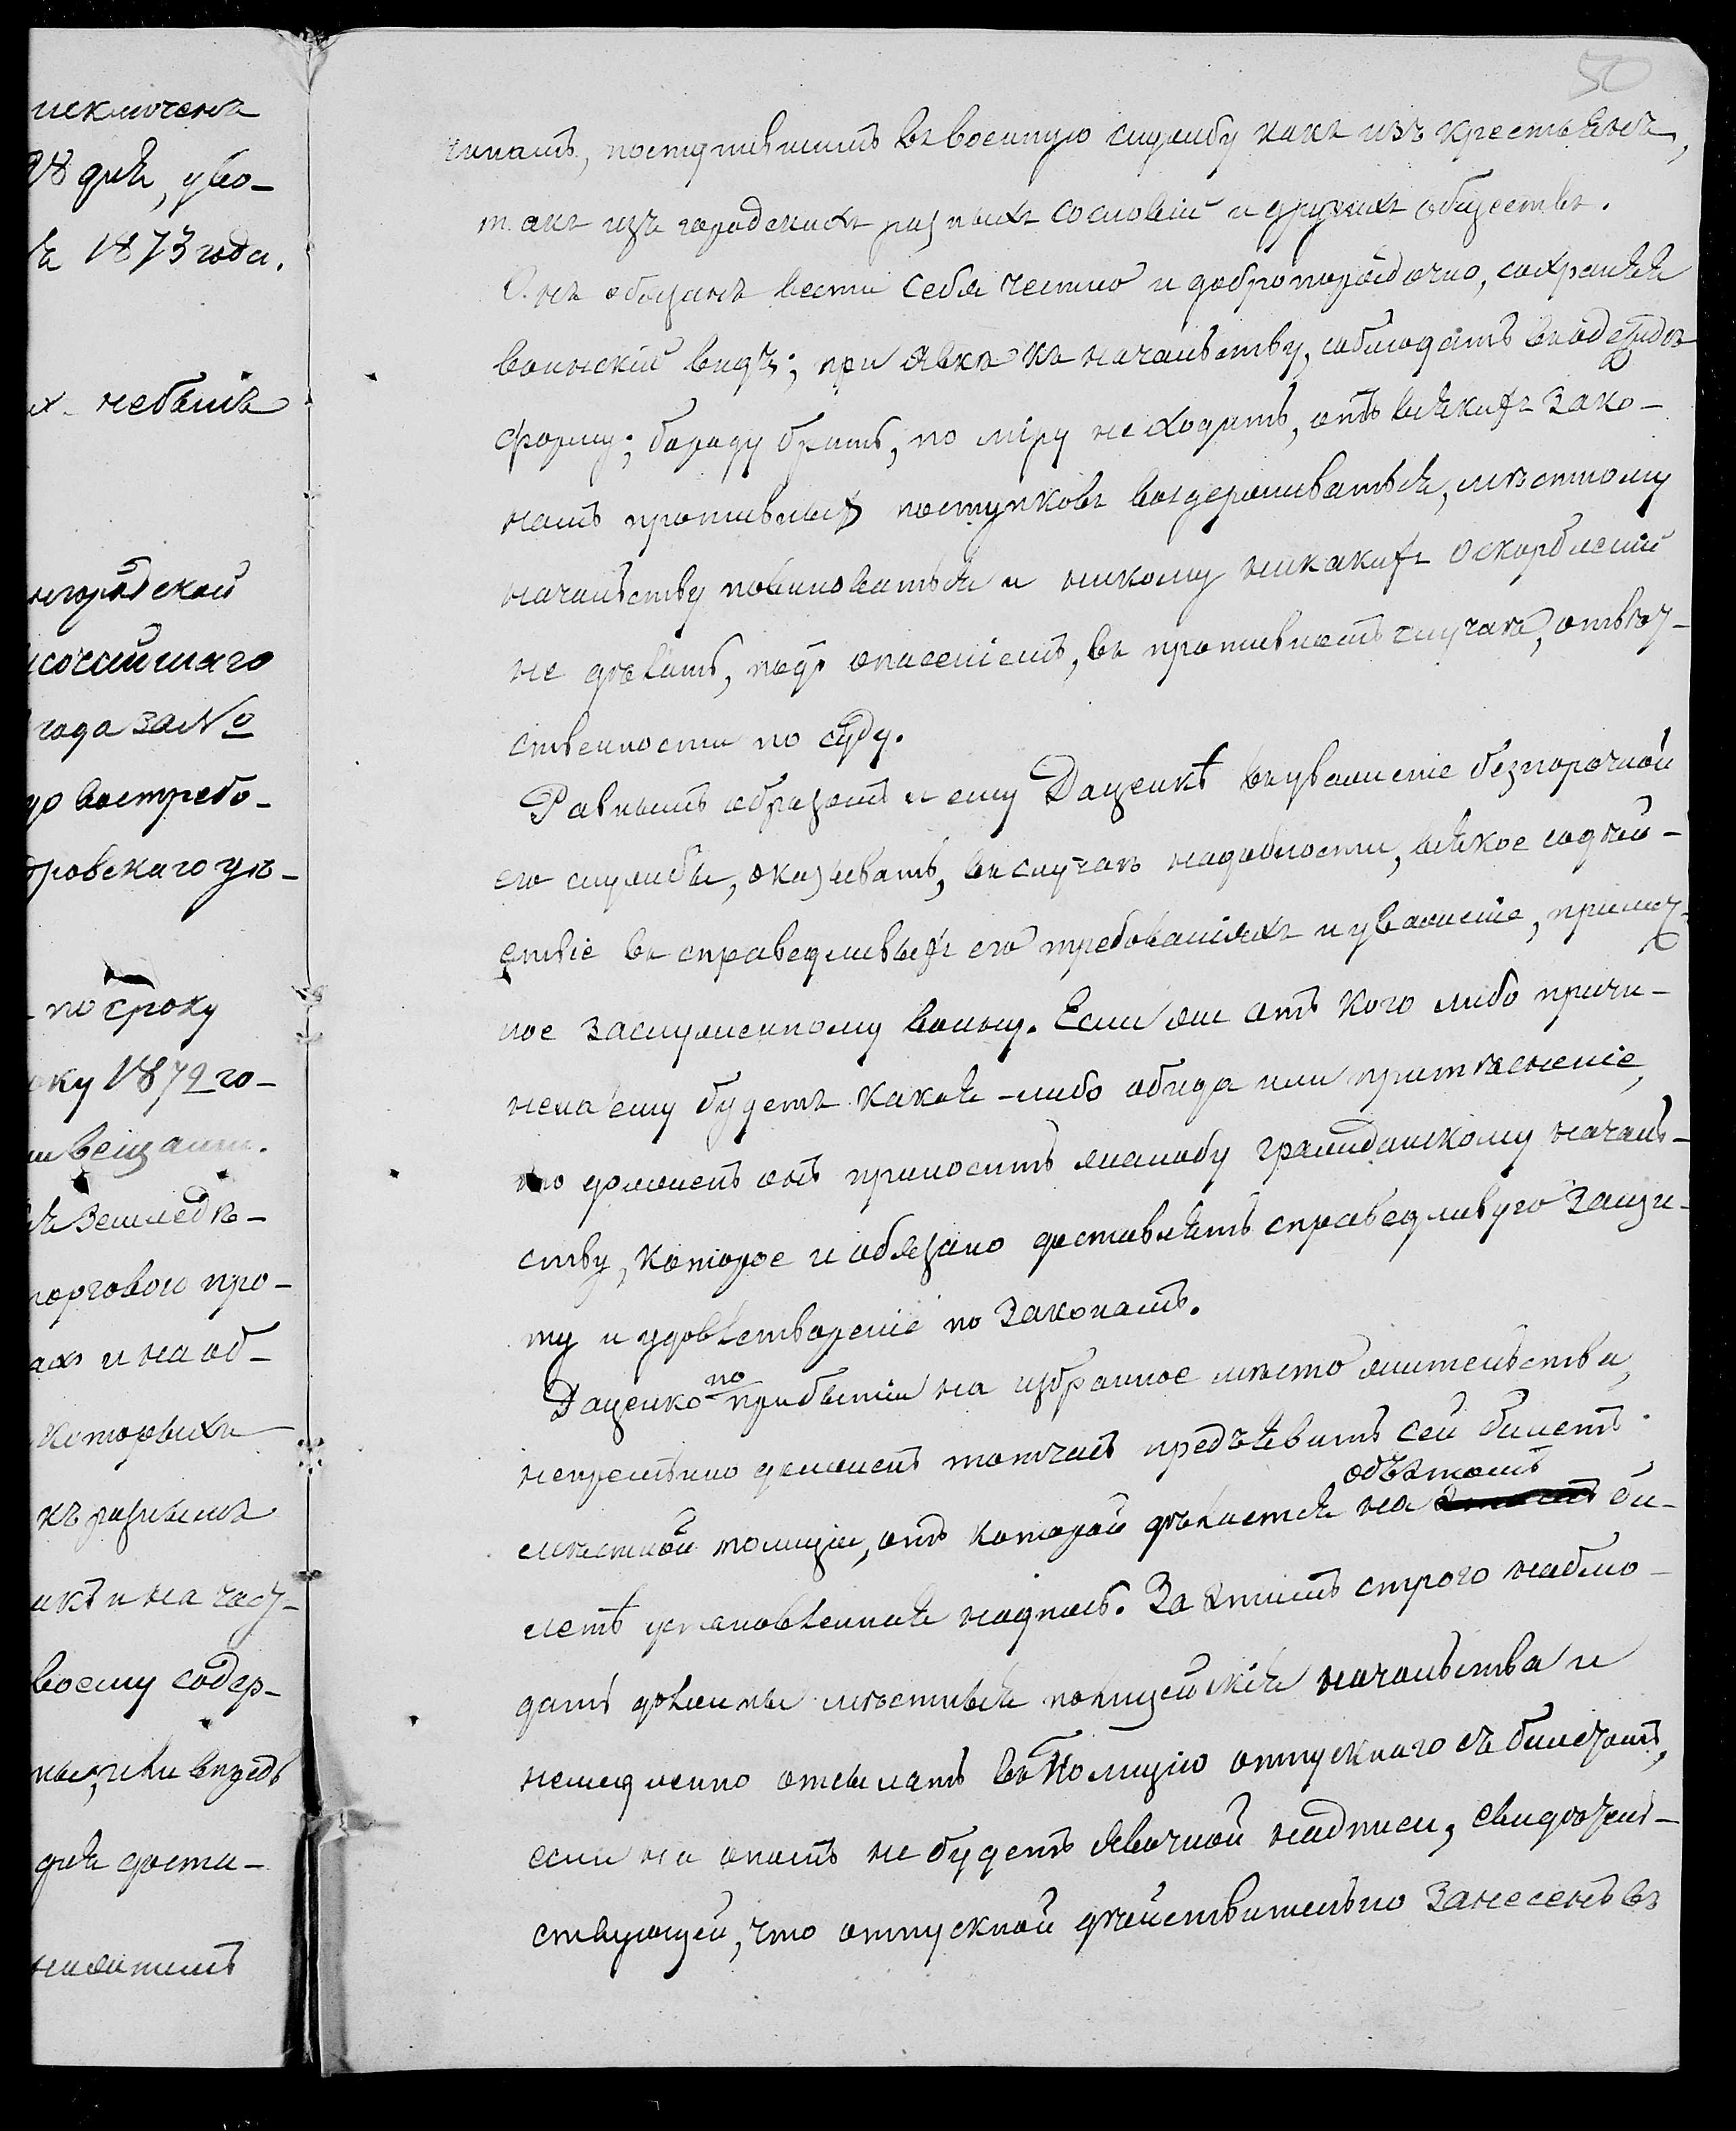 исключенъ
28 дня, уво-
1873 года.
небылъ
городской
года за №
востребо-
ровскаго уѣ-
по сроку
1879 го-
вещаніи.
Земледѣ-
торговои про-
и на об-
которыхъ
къ разнымъ
и на част-
своему содер-
или впредь
для доста-
50
чинамъ, поступившимъ въ военную службу какъ изъ крестьянъ,
такъ изъ городскихъ разныхъ сословій и другихъ обществъ.
Онъ обязанъ вести себя честно и добропорядочно, сохраняя
воинскій видъ; при явкѣ къ начальству, соблюдать въ одеждѣ
форму; бороду брить, по міру не ходить, отъ всякихъ зако-
намъ противныхъ поступковъ воздерживаться, мѣстному
начальству повиноваться и никому никакихъ оскорбленій
не дѣлать, подъ опасеніемъ, въ противномъ случаѣ, отвѣт-
ственности по суду.
Равнымъ образомъ и ему Даценкѣ въ уваженіе безпорочной
его службы, оказывать, въ случаѣ надобности, всякое содѣй-
ствіе въ справедливыхъ его требованіяхъ и уваженіе, прилич-
ное заслуженному воину. Если же отъ кого либо причи-
нена ему будетъ какая-либо обида или притѣсненіе,
то долженъ онъ приносить жалобу гражданскому началь-
ству, которое и обязано доставлять справедливую защи-
ту и удовлетвореніе по законамъ.
Даценко по прибытіи на избранное мѣсто жительства,
непремѣнно долженъ тотчасъ предъявить сей билетъ
мѣстной полиціи, отъ которой дѣлается на объ этомъ би-
летѣ установленная надпись. За этимъ строго наблю-
дать должны мѣстныя полицейскія начальства и
немедленно отсылать въ Полицію отпускнаго съ билетомъ,
если на ономъ не будетъ явочной надписи, свидѣтель-
ствующей, что отпускной дѣйствительно занесенъ въ